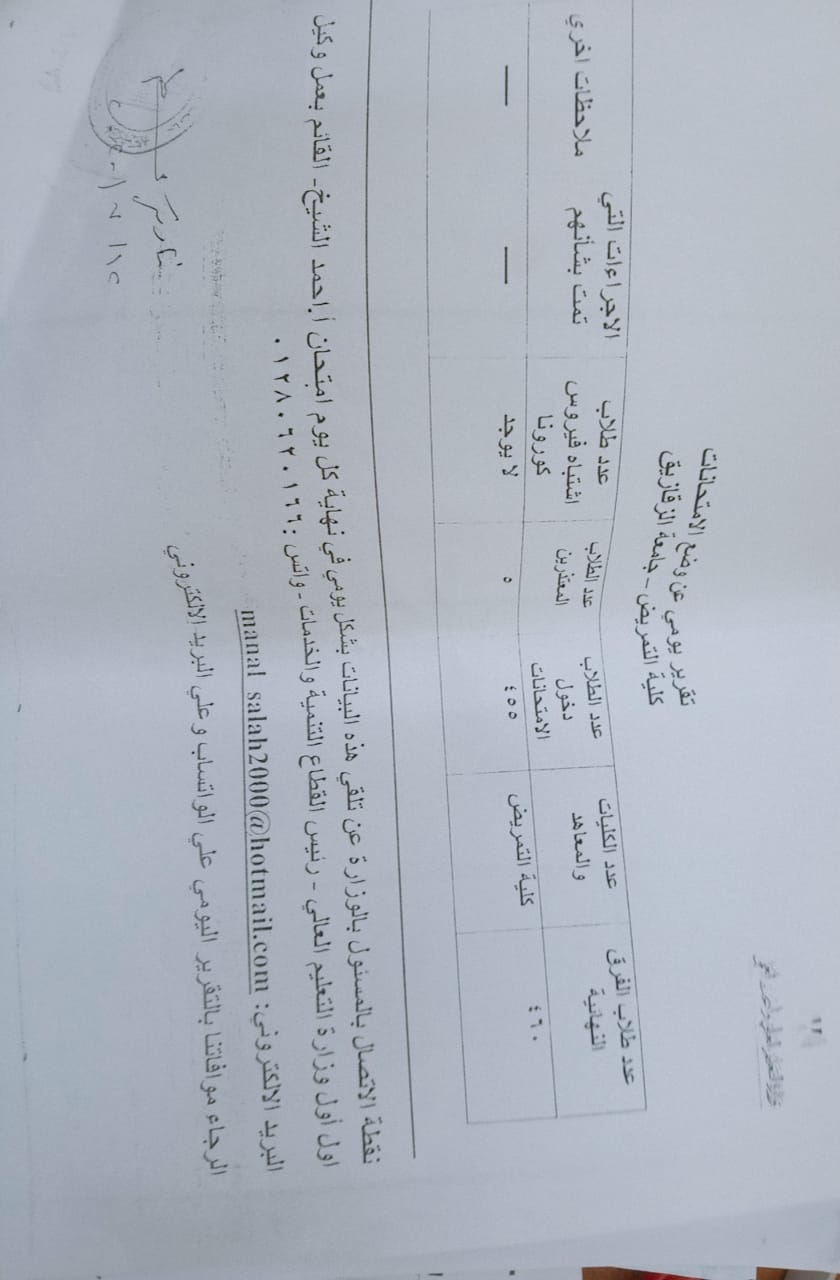 تقرير يومي عن وضع الامتحانات
كلية التمريض - جامعة الزقازيق
عدد طلاب الفرق النهائية
عدد الكليات والمعاهد
عدد الطلاب دخول الامتحانات
عدد الطلاب المعتذرين
عدد طلاب اشتباه فيروس كورونا
الاجراءات التي تمت بشأنهم
ملاحظات اخري
٤٦٠
كلية التمريض
٤٥٥
٥
لا يوجد
—
—
نقطة الاتصال بالمسئول بالوزارة عن تلقي هذه البيانات بشكل يومي في نهاية كل يوم امتحان أ.احمد الشيخ- القائم بعمل وكيل
اول أول وزارة التعليم العالي - رئيس القطاع التنمية والخدمات - واتس :٠١٢٨٠٦٢٠١٦٦
البريد الالكتروني: manal salah2000@hotmail.com
الرجاء موافاتنا بالتقرير اليومي علي الواتساب وعلي البريد الالكتروني